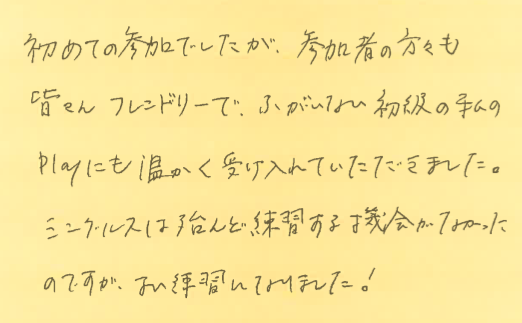 初めての参加でしたが、参加者の方々も
皆さんフレンドリーで、ふがいない初級の私の
Playにも温かく受け入れていただきました。
ミングルスは殆んど練習する機会がなかった
のですが、よい練習になりました！